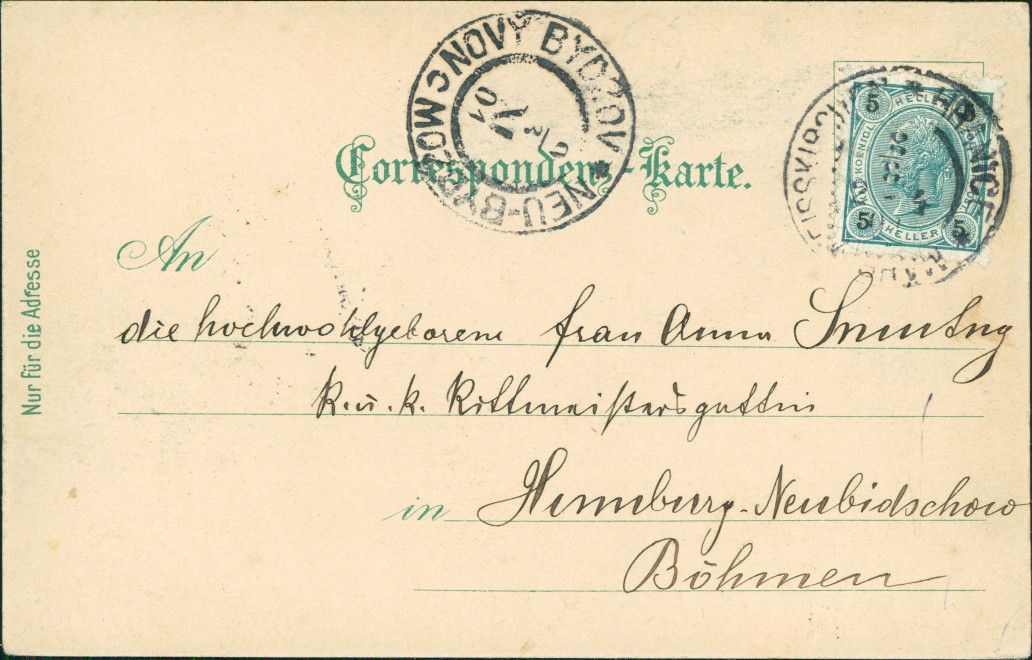 NOVÝ BYDŽOV * NEU-BYDŽOW C
2/5
01
5 HELLER 5
5 HELLER 5
HRANICE *
Correspondenz-Karte.
Nur für die Adresse
An
die hochwohlgeborene Frau Anna
k. u. k. Rittmeistersgattin
in Neubidschow
Böhmen